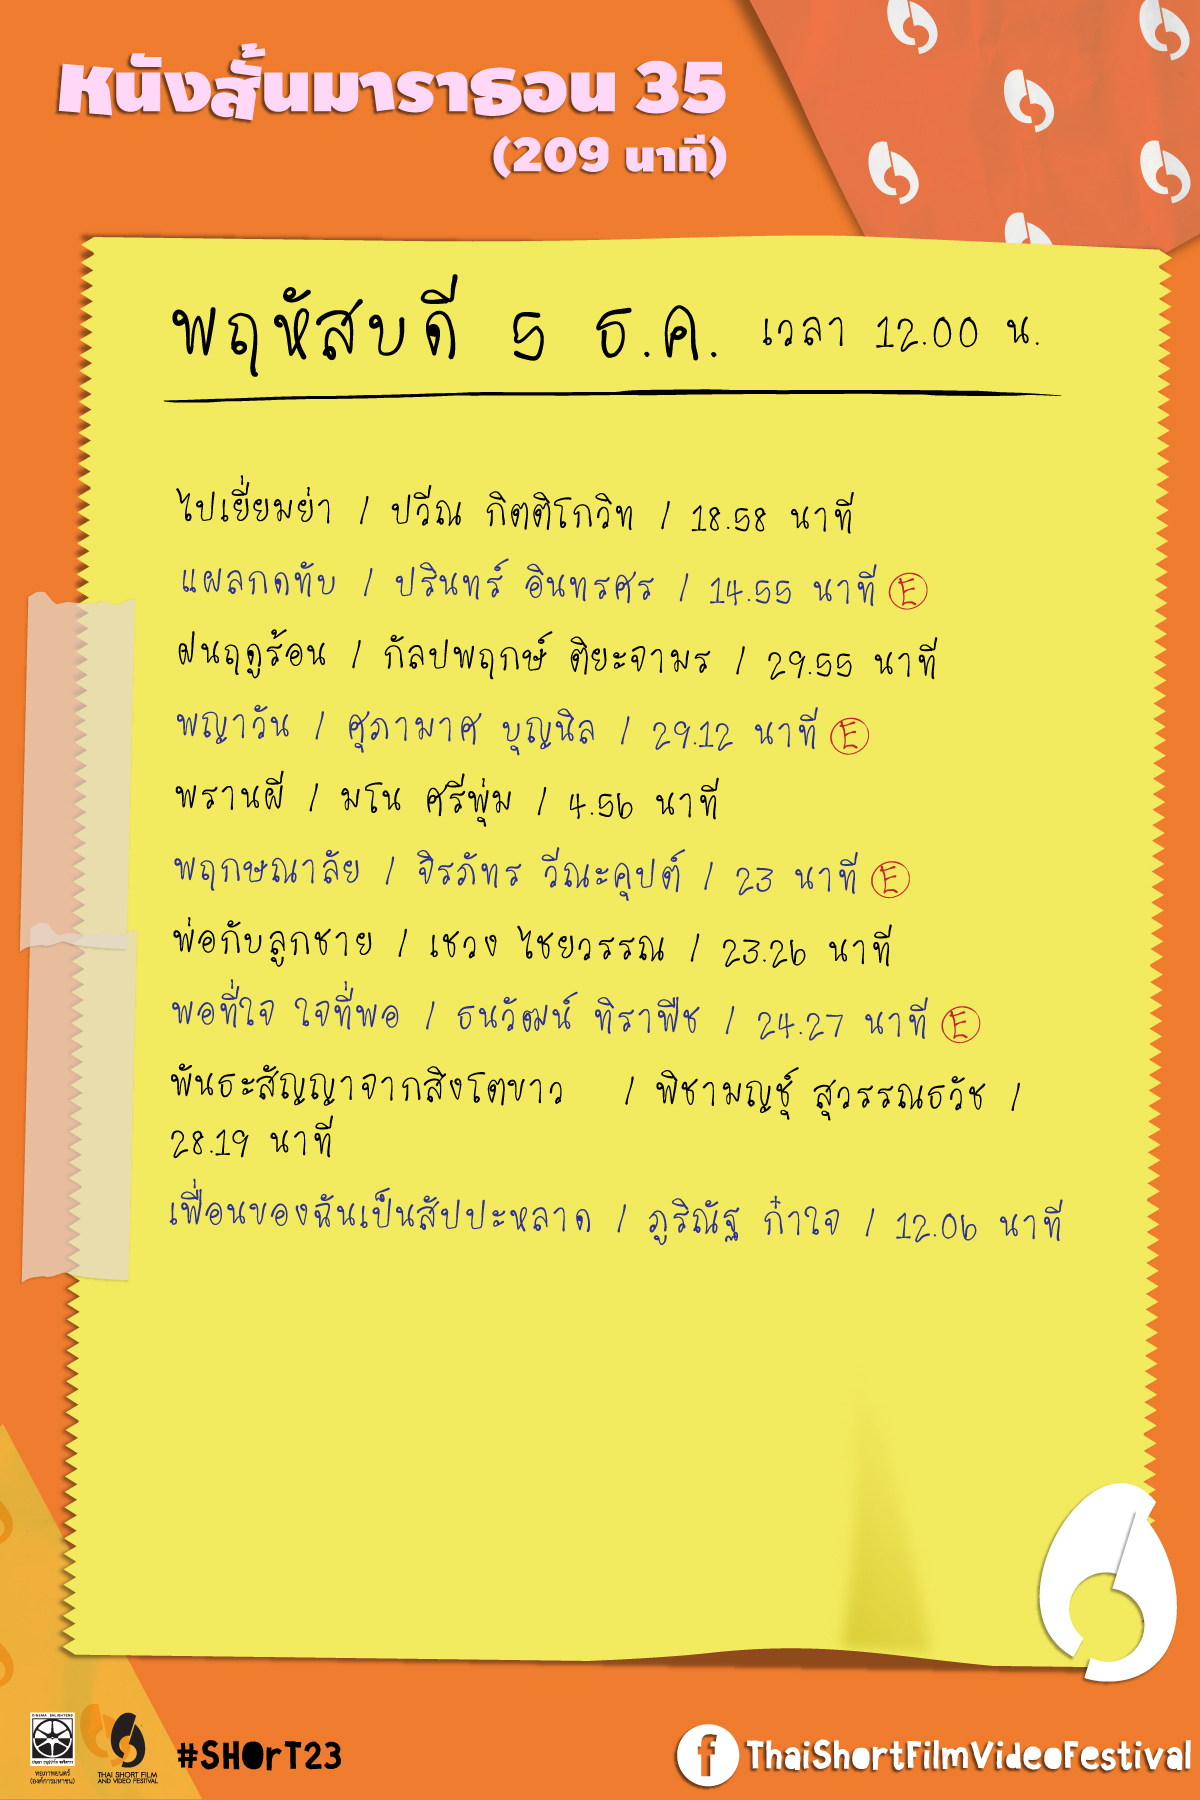 หนังสั้นมาราธอน 35
(209 นาที)
พฤหัสบดี 5 ธ.ค. เวลา 12.00 น.
ไปเยี่ยมย่า / ปวีณ กิตติโกวิท / 18.58 นาที
แผลกดทับ / ปรินทร์ อินทรศร / 14.55 นาที Ⓔ
ฝนฤดูร้อน / กัลปพฤกษ์ ติยะจามร / 29.55 นาที
พญาวัน / ศุภามาศ บุญนิล / 29.12 นาที Ⓔ
พรานผี / มโน ศรีพุ่ม / 4.56 นาที
พฤกษณาลัย / จิรภัทร วีณะคุปต์ / 23 นาที Ⓔ
พ่อกับลูกชาย / เชวง ไชยวรรณ / 23.26 นาที
พอที่ใจ ใจที่พอ / ธนวัฒน์ ทิราพืช / 24.27 นาที Ⓔ
พันธะสัญญาจากสิงโตขาว / พิชามญชุ์ สุวรรณธวัช /
28.19 นาที
เพื่อนของฉันเป็นสัปปะหลาด / ภูริณัฐ ก๋าใจ / 12.06 นาที
CINEMA ENLIGHTENS
หอภาพยนตร์
(องค์การมหาชน)
THAI SHORT FILM
AND VIDEO FESTIVAL
#SHOrT23
f ThaiShortFilmVideoFestival